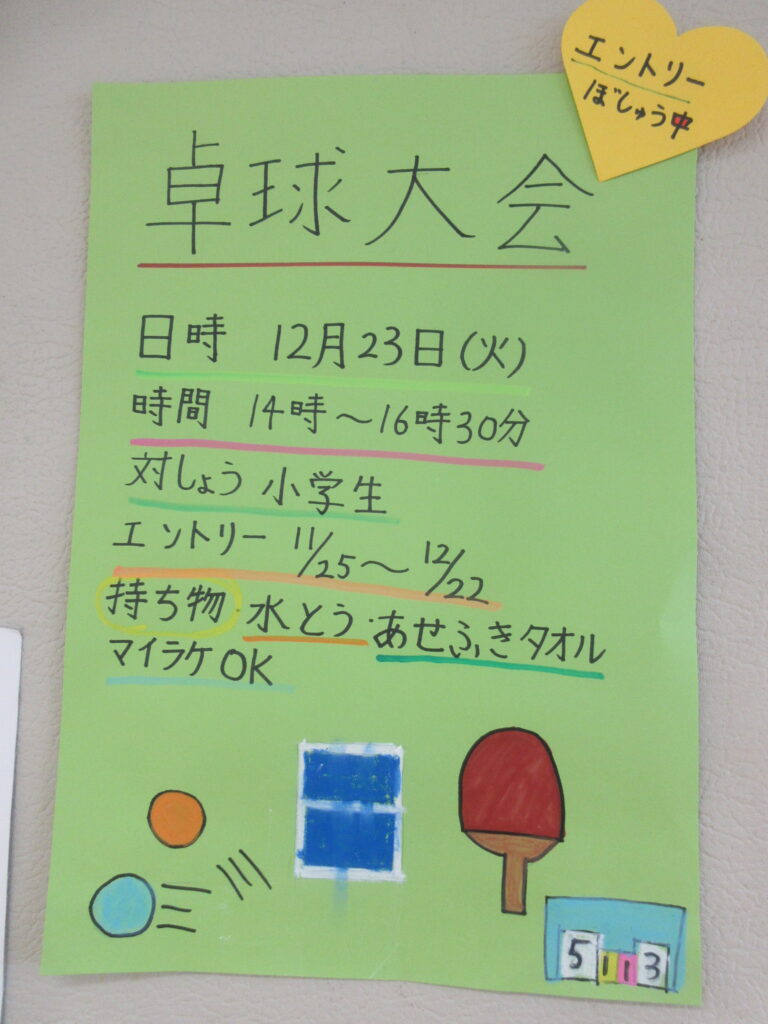 エントリー
ぼしゅう中
卓球大会
日時 12月23日(火)
時間 14時～16時30分
対しょう 小学生
エントリー 11/25～12/22
持ち物・水とう・あせふきタオル
マイラケOK
5 1 1 3